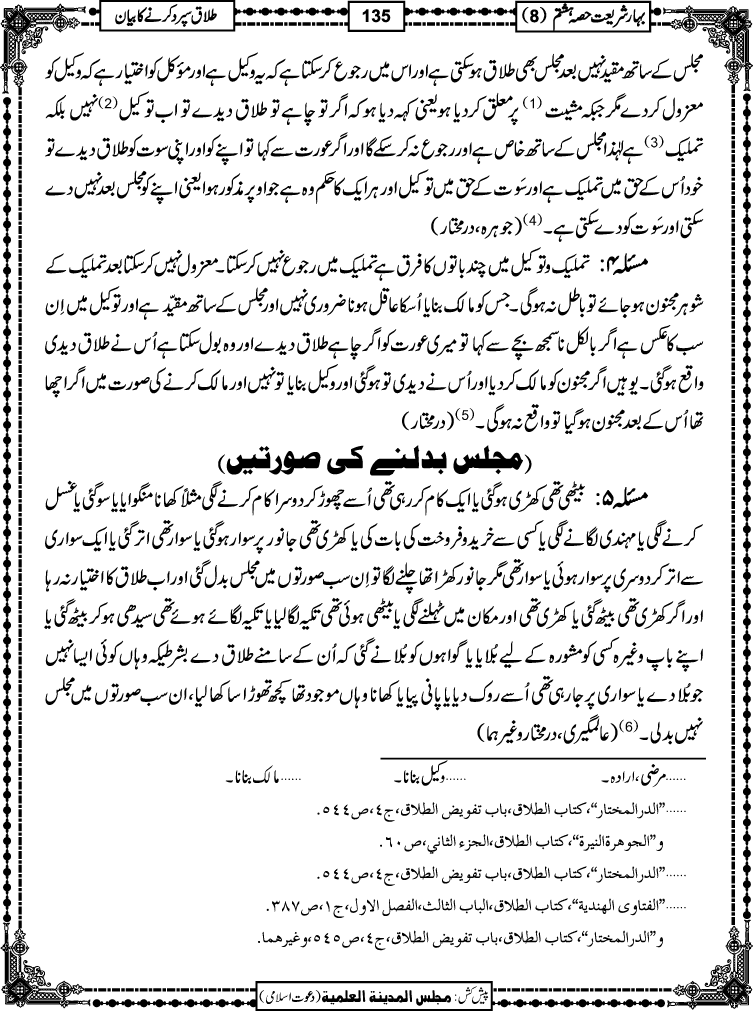 بہار شریعت حصہ ہشتم (8)
135
طلاق سپرد کرنے کا بیان
مجلس کے ساتھ مقید نہیں بعد مجلس بھی طلاق ہوسکتی ہے اور اس میں رجوع کرسکتا ہے کہ یہ وکیل ہے اور مؤکل کو اختیار ہے کہ وکیل کو
معزول کردے مگر جبکہ مشیت (1) پر معلق کردیا ہو یعنی کہہ دیا ہو کہ اگر تو چاہے تو طلاق دیدے تو اب توکیل (2) نہیں بلکہ
تملیک (3) ہے لہٰذا مجلس کے ساتھ خاص ہے اور رجوع نہ کرسکے گا اور اگر عورت سے کہا تو اپنے کو اور اپنی سوت کو طلاق دیدے تو
خود اُس کے حق میں تملیک ہے اور سَوت کے حق میں توکیل اور ہر ایک کا حکم وہ ہے جو اوپر مذکور ہوا یعنی اپنے کو مجلس بعد نہیں دے
سکتی اور سَوت کو دے سکتی ہے۔ (4) (جوہرہ، درمختار)
مسئلہ ۴: تملیک و توکیل میں چند باتوں کا فرق ہے تملیک میں رجوع نہیں کرسکتا۔ معزول نہیں کرسکتا بعد تملیک کے
شوہر مجنون ہوجائے تو باطل نہ ہوگی۔ جس کو مالک بنایا اُسکا عاقل ہونا ضروری نہیں اور مجلس کے ساتھ مقیّد ہے اور توکیل میں اِن
سب کا عکس ہے اگر بالکل ناسمجھ بچے سے کہا تو میری عورت کو اگر چاہے طلاق دیدے اور وہ بول سکتا ہے اُس نے طلاق دیدی
واقع ہوگئی۔ یوہیں اگر مجنون کو مالک کردیا اور اُس نے دیدی تو ہوگئی اور وکیل بنایا تو نہیں اور مالک کرنے کی صورت میں اگر اچھا
تھا اُس کے بعد مجنون ہوگیا تو واقع نہ ہوگی۔ (5) (درمختار)
(مجلس بدلنے کی صورتیں)
مسئلہ ۵: بیٹھی تھی کھڑی ہوگئی یا ایک کام کررہی تھی اُسے چھوڑ کر دوسرا کام کرنے لگی مثلاً کھانا منگوایا یا سوگئی یا غسل
کرنے لگی یا مہندی لگانے لگی یا کسی سے خرید و فروخت کی بات کی یا کھڑی تھی جانور پر سوار ہوگئی یا سوار تھی اتر گئی یا ایک سواری
سے اتر کر دوسری پر سوار ہوئی یا سوار تھی مگر جانور کھڑا تھا چلنے لگا تو اِن سب صورتوں میں مجلس بدل گئی اور اب طلاق کا اختیار نہ رہا
اور اگر کھڑی تھی بیٹھ گئی یا کھڑی تھی اور مکان میں ٹہلنے لگی یا بیٹھی ہوئی تھی تکیہ لگالیا یا تکیہ لگائے ہوئے تھی سیدھی ہوکر بیٹھ گئی یا
اپنے باپ وغیرہ کسی کو مشورہ کے لیے بُلایا یا گواہوں کو بُلانے گئی کہ اُن کے سامنے طلاق دے بشرطیکہ وہاں کوئی ایسا نہیں
جو بُلا دے یا سواری پر جارہی تھی اُسے روک دیا یا پانی پیا یا کھانا وہاں موجود تھا کچھ تھوڑا سا کھالیا، ان سب صورتوں میں مجلس
نہیں بدلی۔ (6) (عالمگیری، درمختار وغیرہما)
......مرضی، ارادہ۔ ......وکیل بنانا۔ ......مالک بنانا۔
......"الدرالمختار"، کتاب الطلاق، باب تفویض الطلاق، ج٤، ص٥٤٤.
و "الجوهرة النیرة"، کتاب الطلاق، الجزء الثانی، ص٦٠.
......"الدرالمختار"، کتاب الطلاق، باب تفویض الطلاق، ج٤، ص٥٤٤.
......"الفتاوی الهندیة"، کتاب الطلاق، الباب الثالث، الفصل الاول، ج١، ص٣٨٧.
و "الدرالمختار"، کتاب الطلاق، باب تفویض الطلاق، ج٤، ص٥٤٥، وغیرهما.
پیش کش: مجلس المدینة العلمیة (دعوت اسلامی)